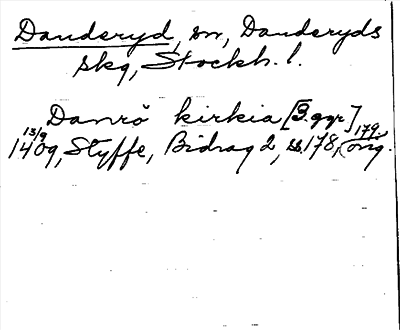 Danderyd, sn, Danderyds
skg, Stockh. l.
Danrö kirkia [3 ggr]
13/9 1409, Styffe, Bidrag 2, s. 178, 179. (orig.